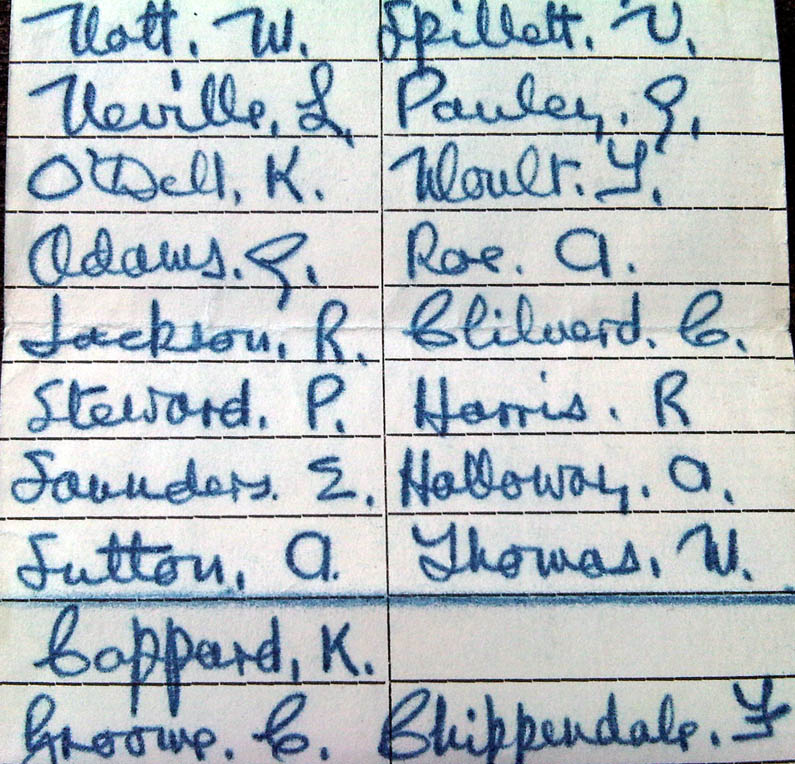 Nott. W. Spillett. V.
Neville, L. Pauley, G.
O'Dell, K. Woult. T.
Adams. G. Roe. A.
Jackson, R. Clilverd. C.
Steward. P. Harris. R
Saunders. E. Holloway. A.
Sutton, A. Thomas, W.
Coppard, K.
Groome. C. Chippendale. F